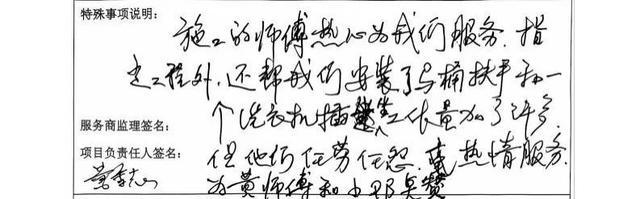 特殊事项说明：
施工的师傅热心为我们服务．指
定工程外，还帮我们安装了马桶扶手和一
个洗衣机插 工作量加了许多
服务商监理签名：
项目负责人签名：
但他们任劳任怨． 热情服务．
为黄师傅和小 点赞